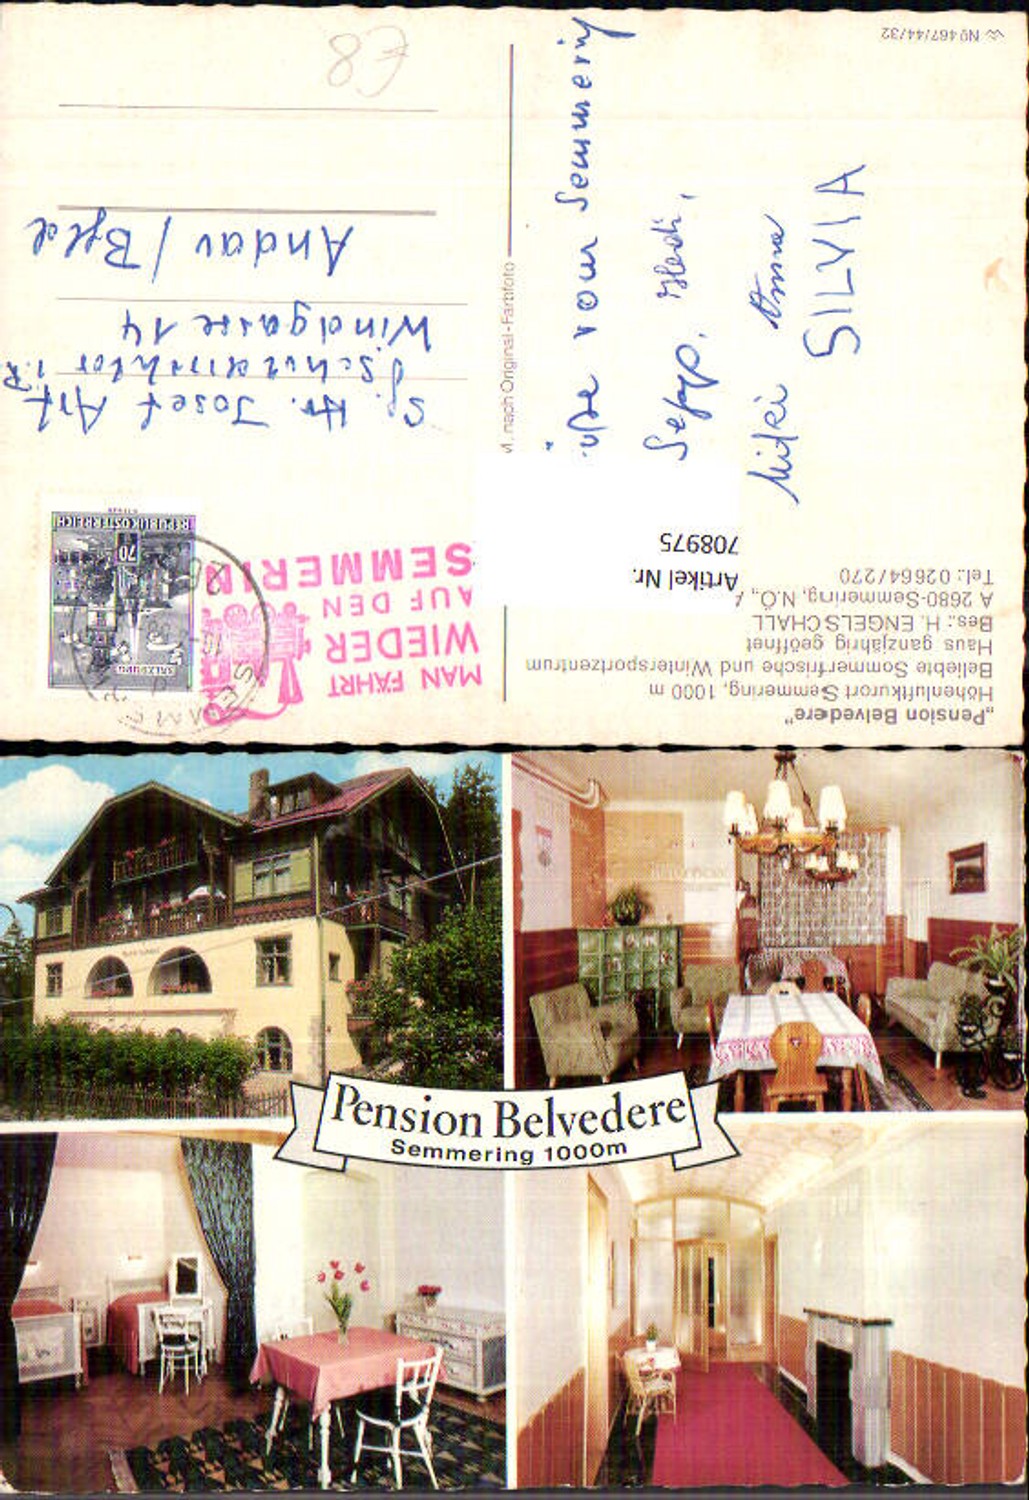 „Pension Belvedere"
Höhenluftkurort Semmering, 1000 m
Beliebte Sommerfrische und Wintersportzentrum
Haus ganzjährig geöffnet
Bes.: H. ENGELSCHALL
A 2680-Semmering, N.Ö.,
Tel.: 02664/270
Artikel Nr.
708975
MAN FÄHRT
WIEDER
AUF DEN
SEMMERING
SALZBURG
70
REPUBLIK ÖSTERREICH
Hr. Josef
i.R.
Windgasse 14
Andau / Bgld
€8
vom Semmering
Sepp, Hedi,
Anna
SILVIA
M. nach Original-Farbfoto
Nº 467/44/32
Pension Belvedere
Semmering 1000m